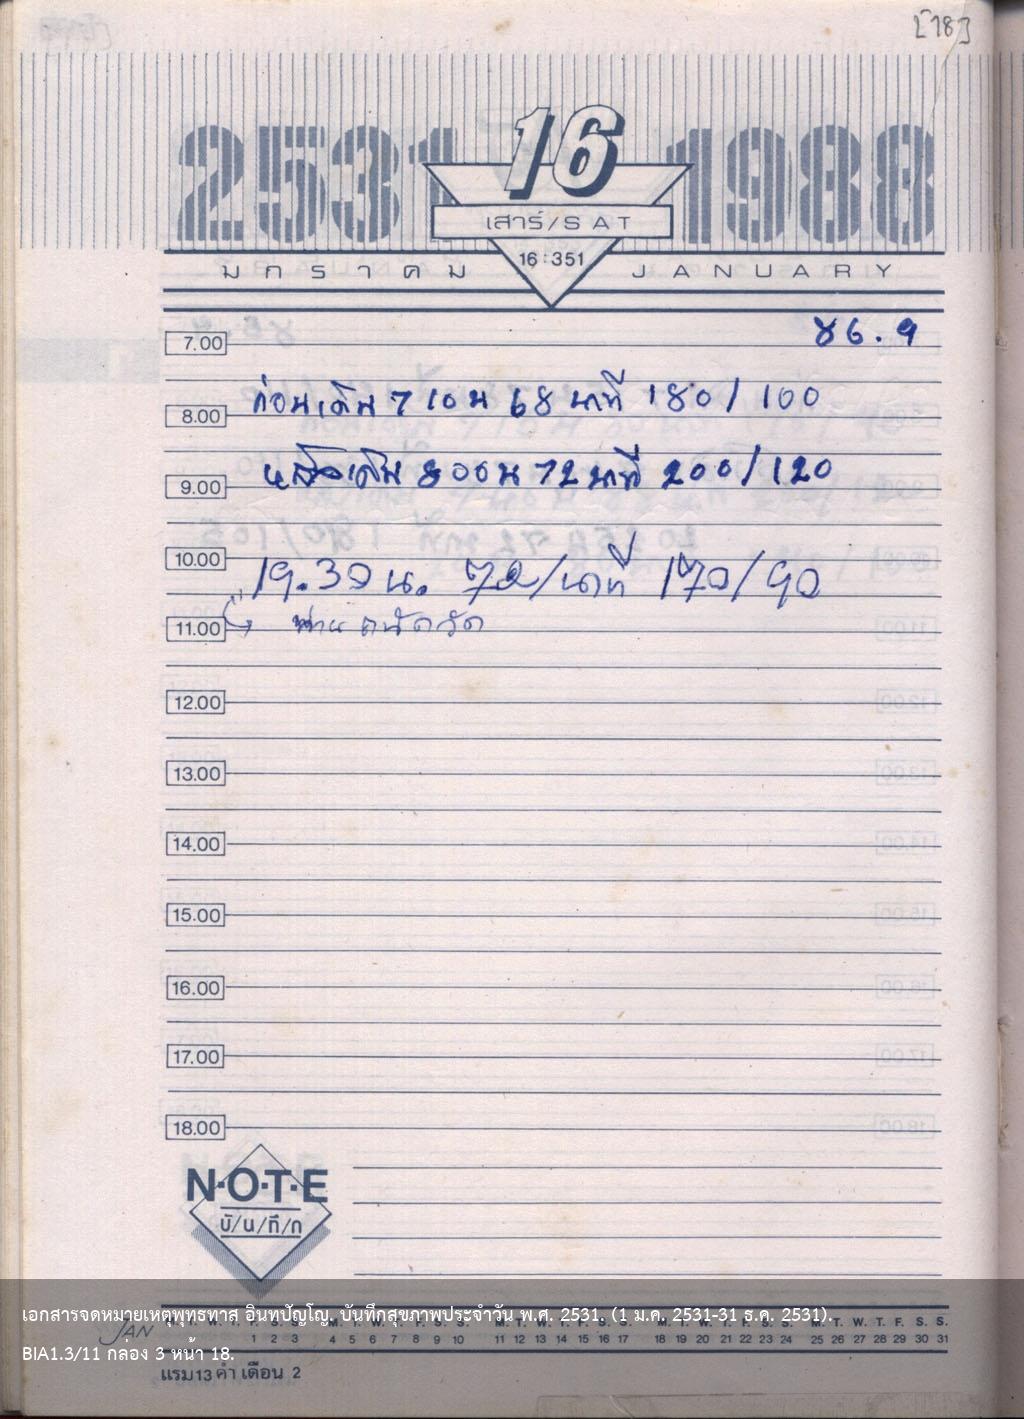 [18]
2531
16
1988
เสาร์/SAT
16:351
มกราคม
JANUARY
7.00
ก่อนเดิน 7 10 น 68 นาที 180/100
8.00
หลังเดิน 800 น 72 นาที 200/120
9.00
10.00
19.30 น. 72/นาที 170/90
11.00
ท่าน ถนัดวัด
12.00
13.00
14.00
15.00
16.00
17.00
18.00
N·O·T·E
บั/น/ทึ/ก
เอกสารจดหมายเหตุพุทธทาส อินทปัญโญ, บันทึกสุขภาพประจำวัน พ.ศ. 2531, (1 ม.ค. 2531-31 ธ.ค. 2531).
JAN
M. T. W. T. F. S. S. M. T. W. T. F. S. S. M. T. W. T. F. S. S. M. T. W. T. F. S. S.
1 2 3 4 5 6 7 8 9 10 11 12 13 14 15 16 17 18 19 20 21 22 23 24 25 26 27 28 29 30 31
BIA1.3/11 กล่อง 3 หน้า 18.
แรม 13 ค่ำ เดือน 2